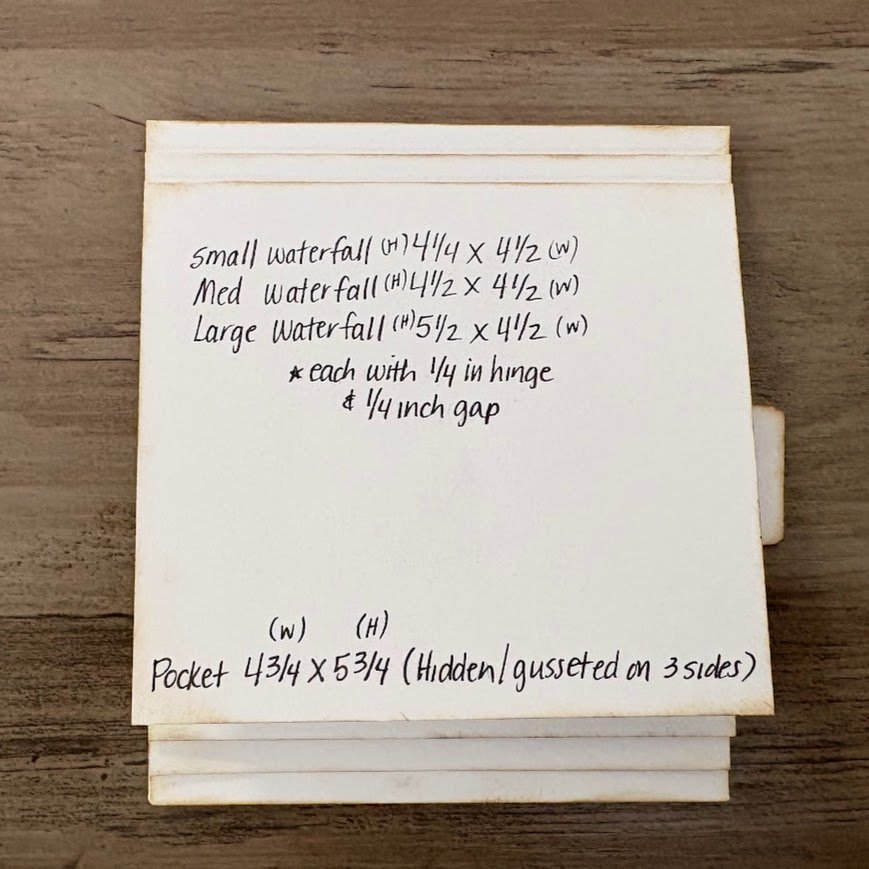 small waterfall (H) 4 1/4 X 4 1/2 (W)
Med waterfall (H) 4 1/2 X 4 1/2 (W)
Large Waterfall (H) 5 1/2 X 4 1/2 (W)
* each with 1/4 in hinge
& 1/4 inch gap
(W) (H)
Pocket 4 3/4 X 5 3/4 (Hidden/gusseted on 3 sides)